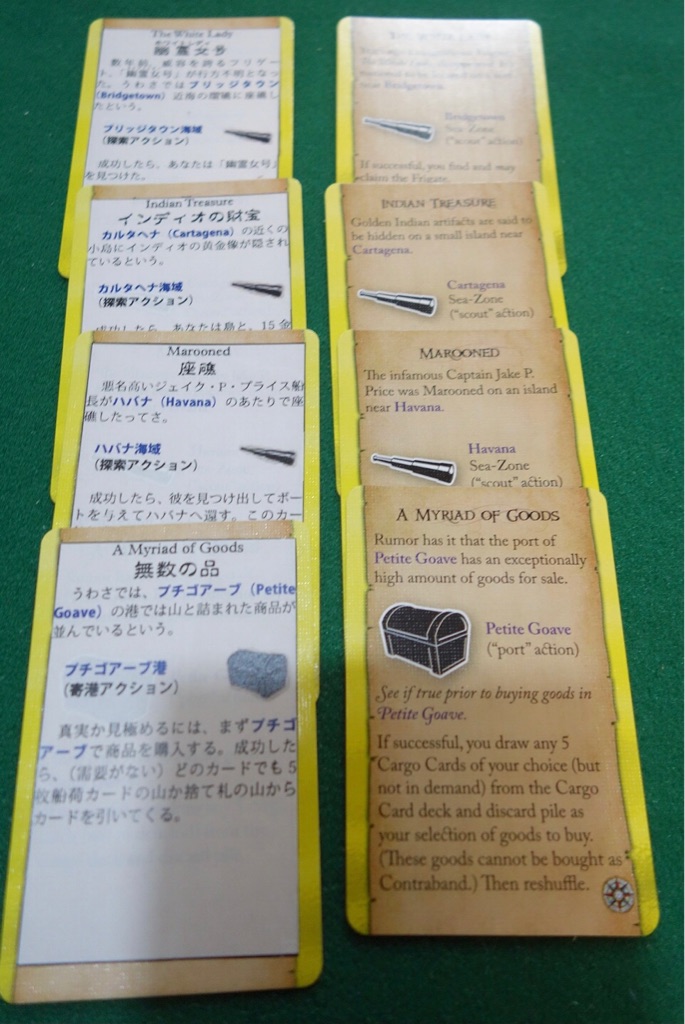 The White Lady
幽霊女号
数年前、威容を誇るフリゲー
ト、「幽霊女号」が行方不明となっ
た。うわさではブリッジタウン
(Bridgetown) 近海の環礁に座礁し
たという。
ブリッジタウン海域
(探索アクション)
成功したら、あなたは「幽霊女号」
を見つけた。
Indian Treasure
インディオの財宝
カルタヘナ (Cartagena) の近くの
小島にインディオの黄金像が隠され
ているという。
カルタヘナ海域
(探索アクション)
成功したら、あなたは島と、15 金
Marooned
座礁
悪名高いジェイク・P・プライス船
長がハバナ (Havana) のあたりで座
礁したってさ。
ハバナ海域
(探索アクション)
成功したら、彼を見つけ出してボー
トを与えてハバナへ還す。このカー
A Myriad of Goods
無数の品
うわさでは、プチゴアーブ (Petite
Goave) の港では山と詰まれた商品が
並んでいるという。
プチゴアーブ港
(寄港アクション)
真実か見極めるには、まずプチゴ
アーブで商品を購入する。成功した
ら、(需要がない) どのカードでも 5
枚船荷カードの山か捨て札の山から
カードを引いてくる。
The White Lady
near Bridgetown.
Bridgetown
Sea-Zone
("scout" action)
If successful, you find and may
claim the Frigate.
Indian Treasure
Golden Indian artifacts are said to
be hidden on a small island near
Cartagena.
Cartagena
Sea-Zone
("scout" action)
Marooned
The infamous Captain Jake P.
Price was Marooned on an island
near Havana.
Havana
Sea-Zone
("scout" action)
A Myriad of Goods
Rumor has it that the port of
Petite Goave has an exceptionally
high amount of goods for sale.
Petite Goave
("port" action)
See if true prior to buying goods in
Petite Goave.
If successful, you draw any 5
Cargo Cards of your choice (but
not in demand) from the Cargo
Card deck and discard pile as
your selection of goods to buy.
(These goods cannot be bought as
Contraband.) Then reshuffle.